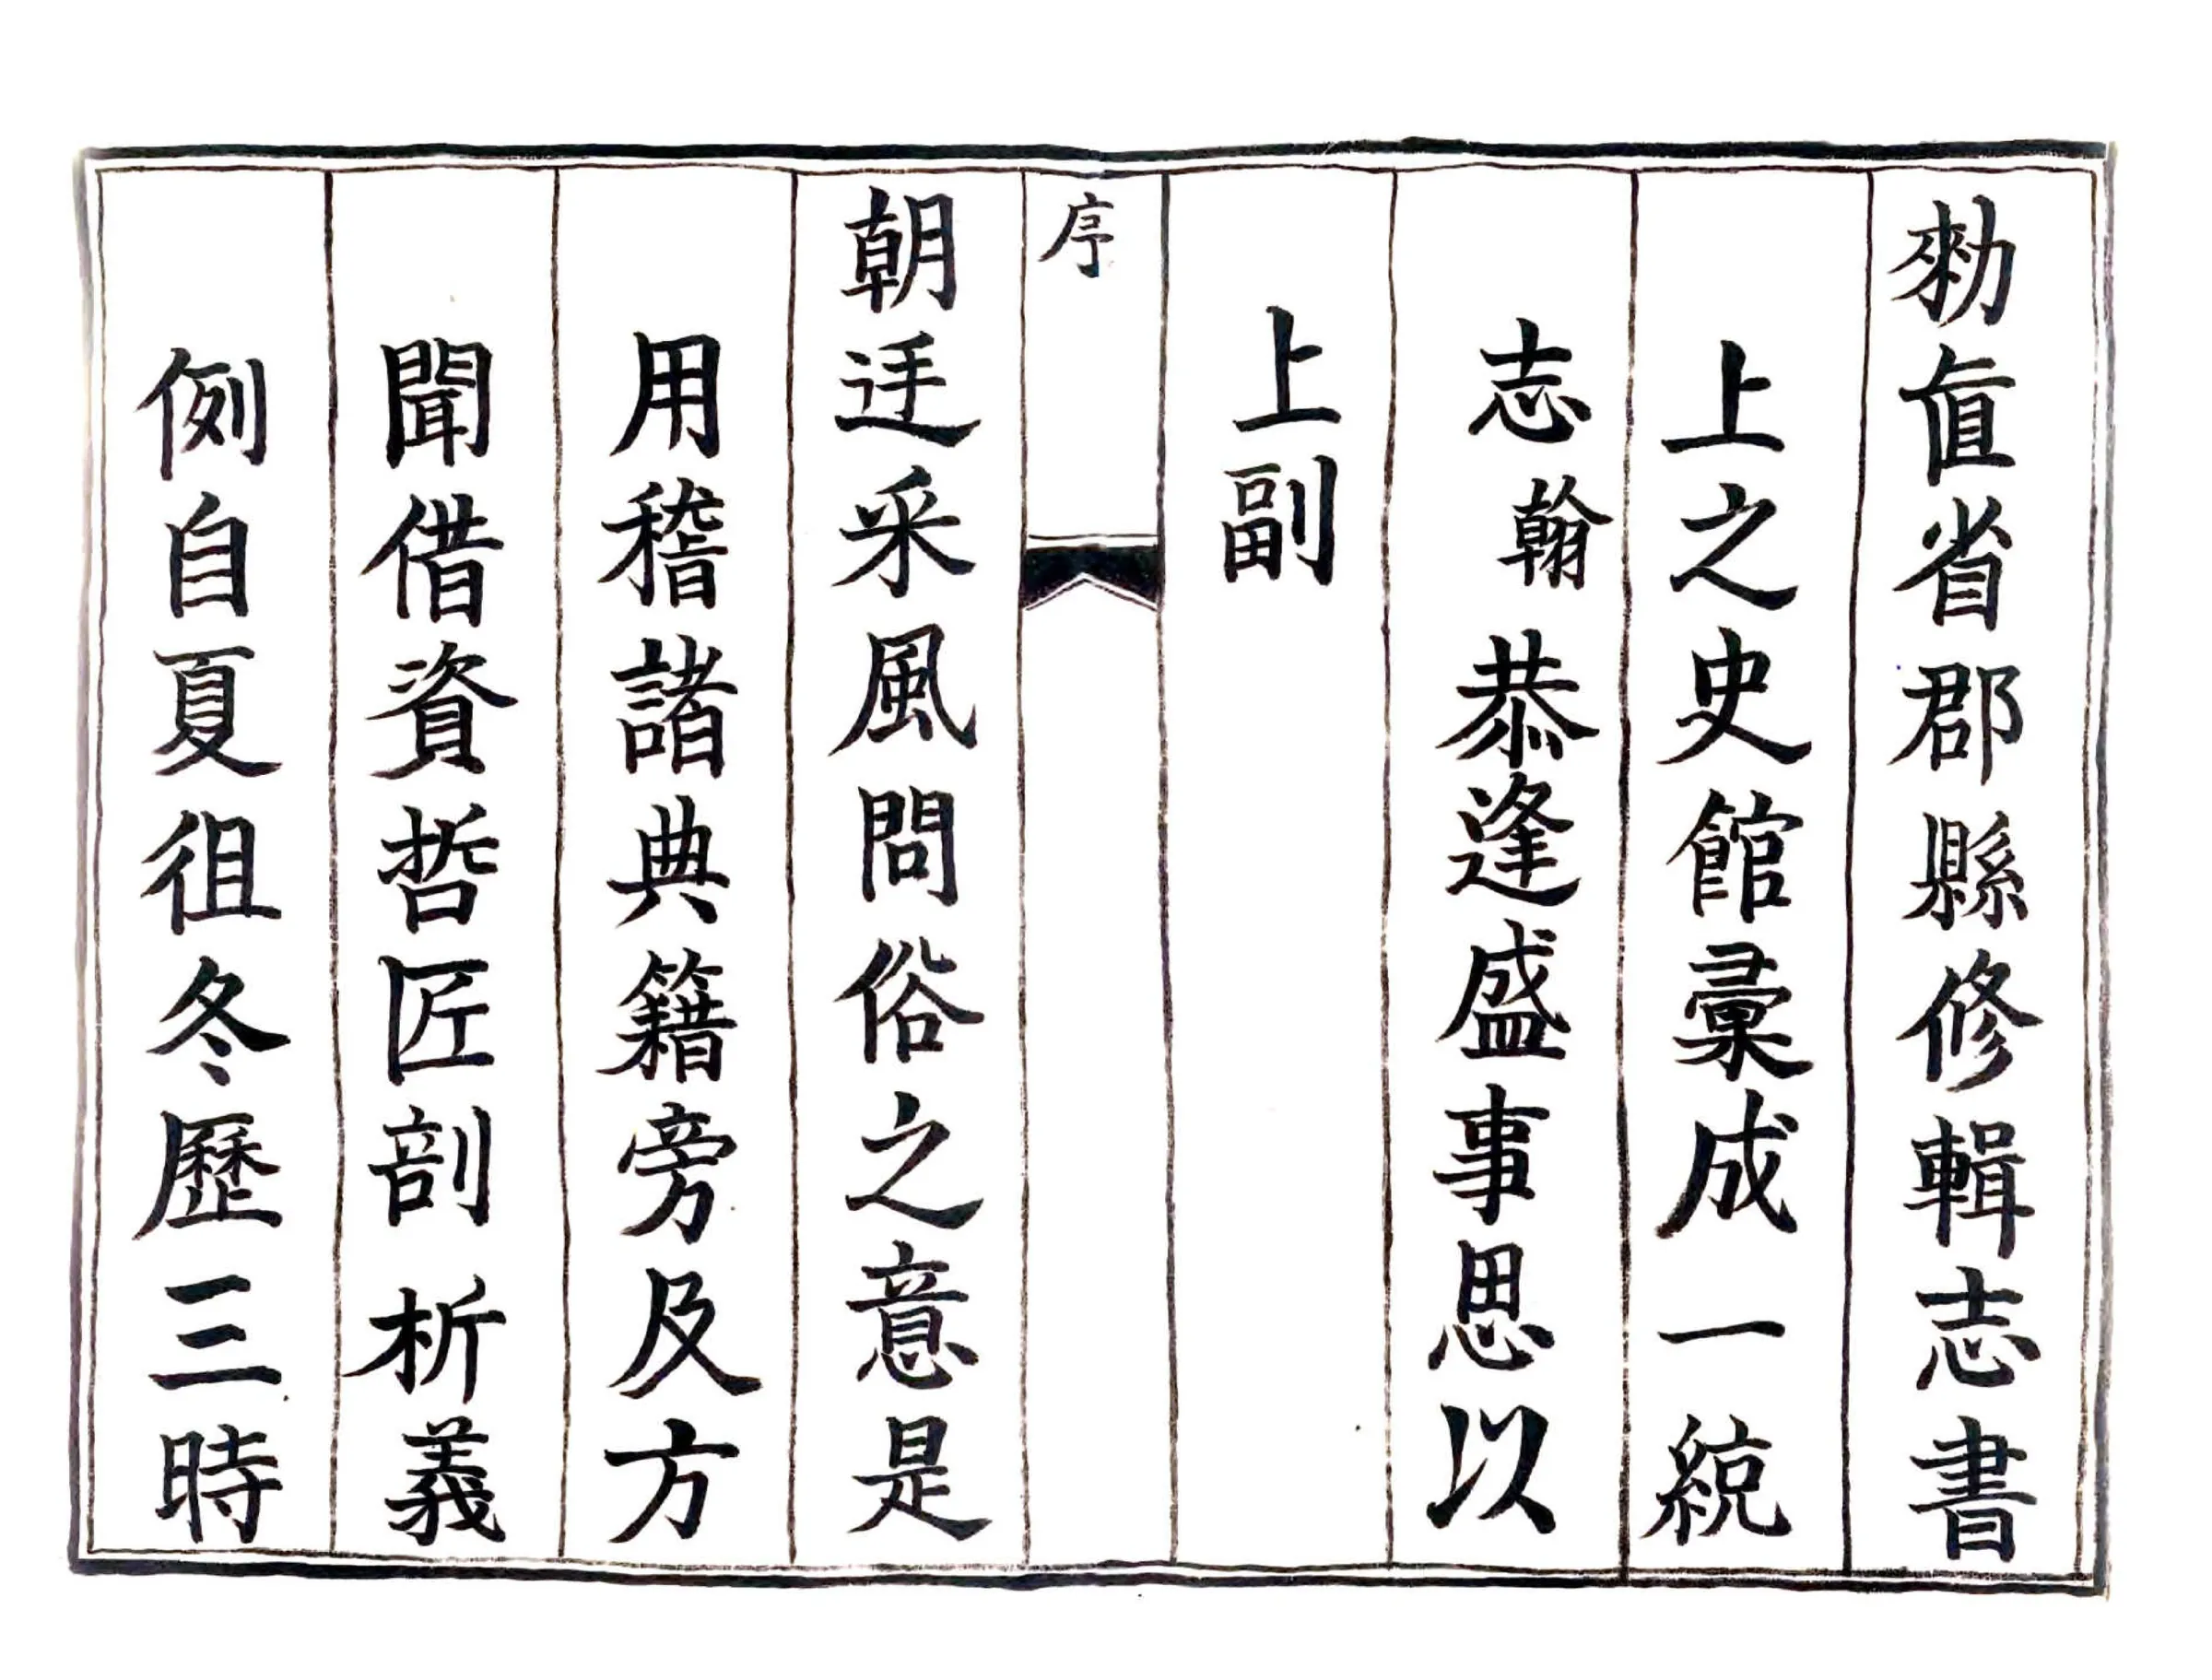 勑直省郡縣修輯志書
上之史館彙成一統
志翰恭逢盛事思以
上副
序
朝廷采風問俗之意是
用稽諸典籍旁及方
聞借資哲匠剖析義
例自夏徂冬歷三時